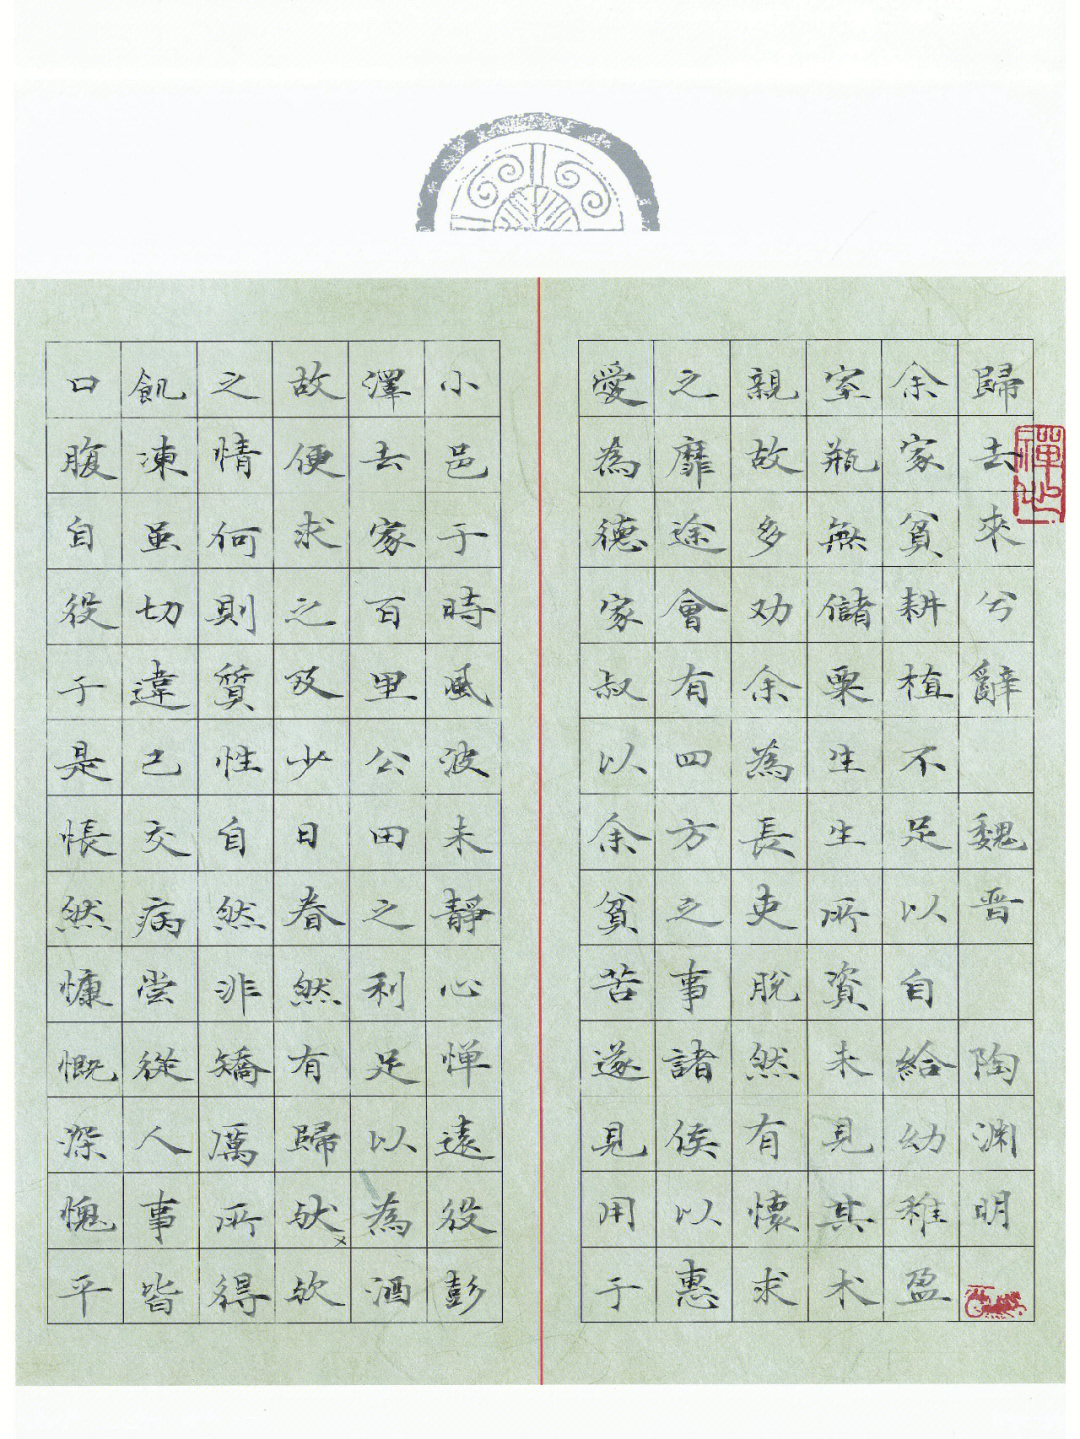 歸去來兮辭 魏晋 陶渊明
余家貧耕植不足以自給幼稚盈
室瓶無儲粟生生所資未見其术
親故多劝余為長吏脫然有懷求
之靡途會有四方之事諸侯以惠
愛為德家叔以余貧苦遂見用于
小邑于時風波未靜心惮遠役彭
澤去家百里公田之利足以為酒
故便求之及少日眷然有歸欤
之情何則質性自然非矯厲所得
飢凍虽切違己交病尝從人事皆
口腹自役于是悵然慷慨深愧平